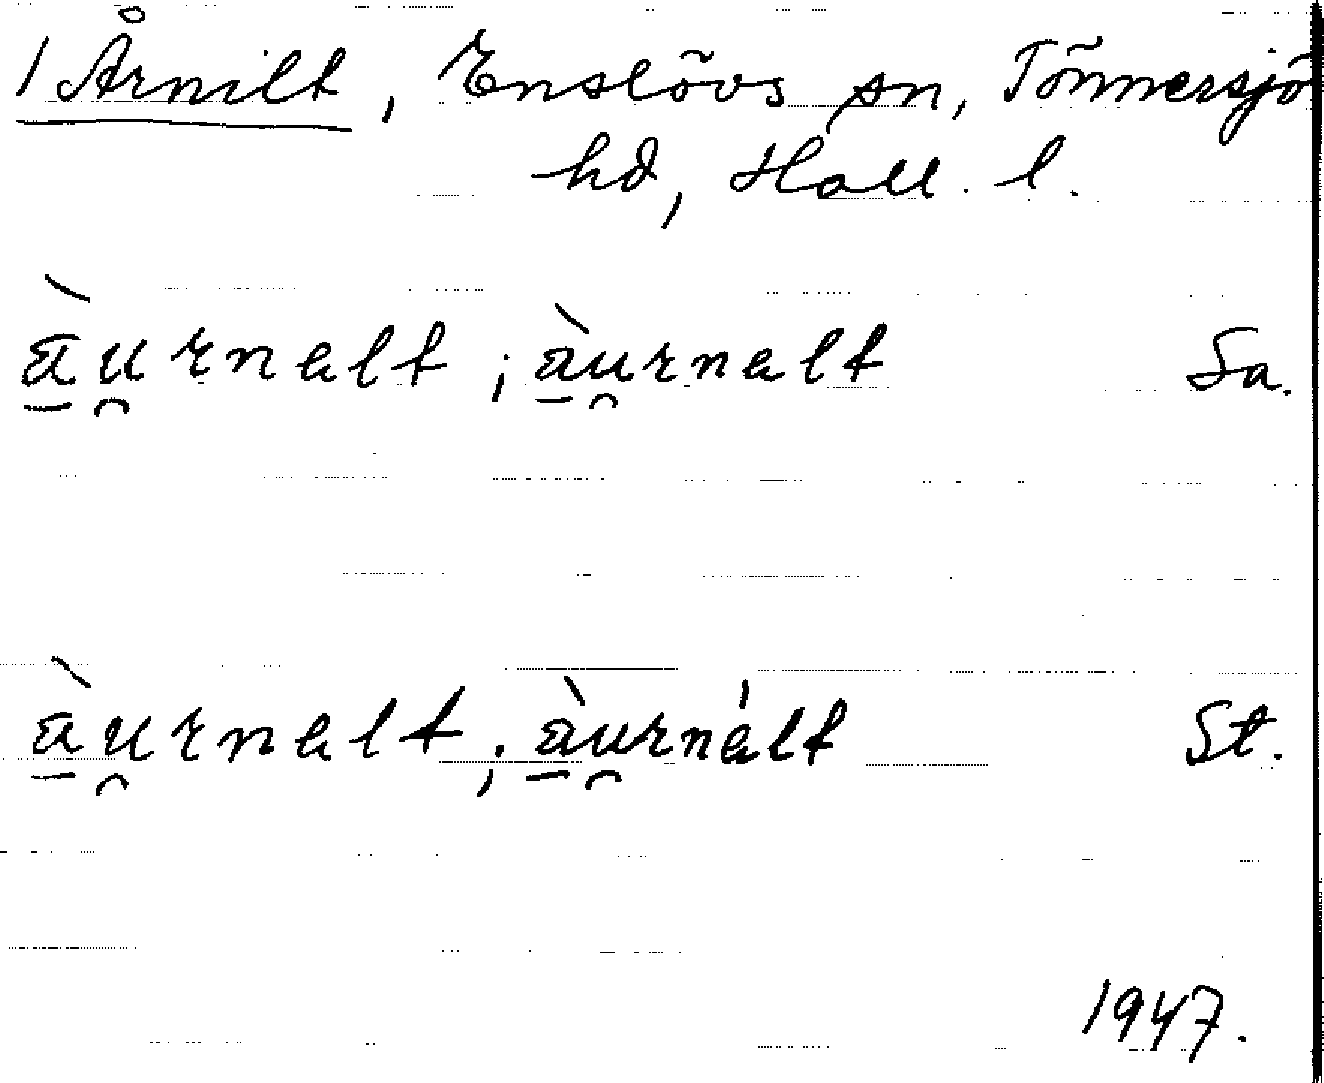 1 Årnilt, Enslövs sn, Tönnersjö
hd, Hall. l.
à̱u̯rnalt; à̱u̯rnalt Sa.
à̱u̯rnalt; à̱u̯rnált St.
1947.